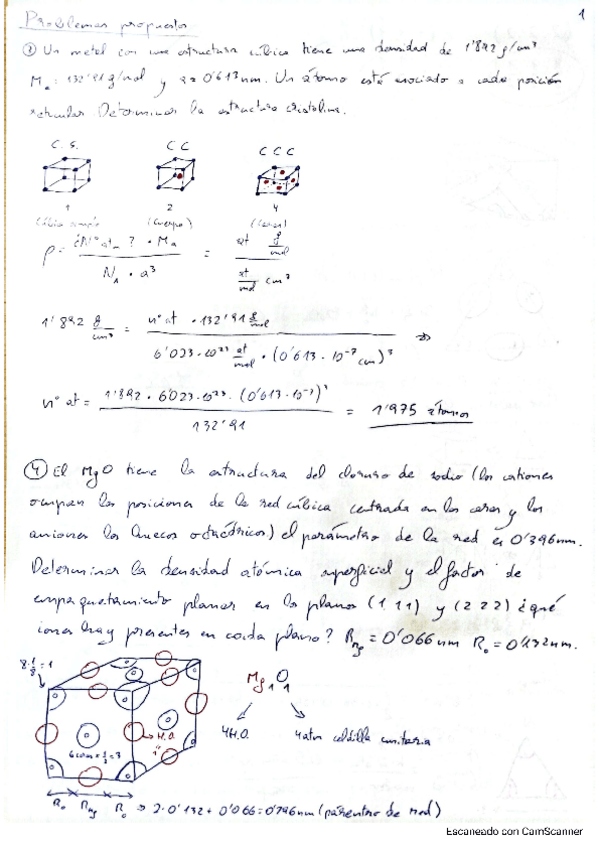 Problemas propuestos
1
③ Un metal con una estructura cúbica tiene una densidad de 1'892 g/cm³
Ma = 132'91 g/mol y a = 0'613 nm. Un átomo está asociado a cada posición
reticular. Determinar la estructura cristalina.
C.S. CC CCC
1 2 4
Cúbica simple (Cuerpo) (Caras)
ρ = ¿Nº at ? · Ma / NA · a³ = at g/mol / at/mol cm³
1'892 g/cm³ = nº at · 132'91 g/mol / 6'023·10²³ at/mol · (0'613·10⁻⁷ cm)³ ⇒
nº at = 1'892 · 6'023·10²³ · (0'613·10⁻⁷)³ / 132'91 = 1'975 átomos
④ El MgO tiene la estructura del cloruro de sodio (los cationes
ocupan las posiciones de la red cúbica centrada en las caras y los
aniones los huecos octaédricos) el parámetro de la red es 0'396 nm.
Determinar la densidad atómica superficial y el factor de
empaquetamiento planar en los planos (1 1 1) y (2 2 2) ¿qué
iones hay presentes en cada plano? RMg = 0'066 nm Ro = 0'132 nm.
8·1/8 = 1
Mg₁O₁
H.O.
4H.O. 4 atm celdilla unitaria
Ro RMg Ro ⇒ 2·0'132 + 0'066 = 0'396 nm (parámetro de red)
Escaneado con CamScanner